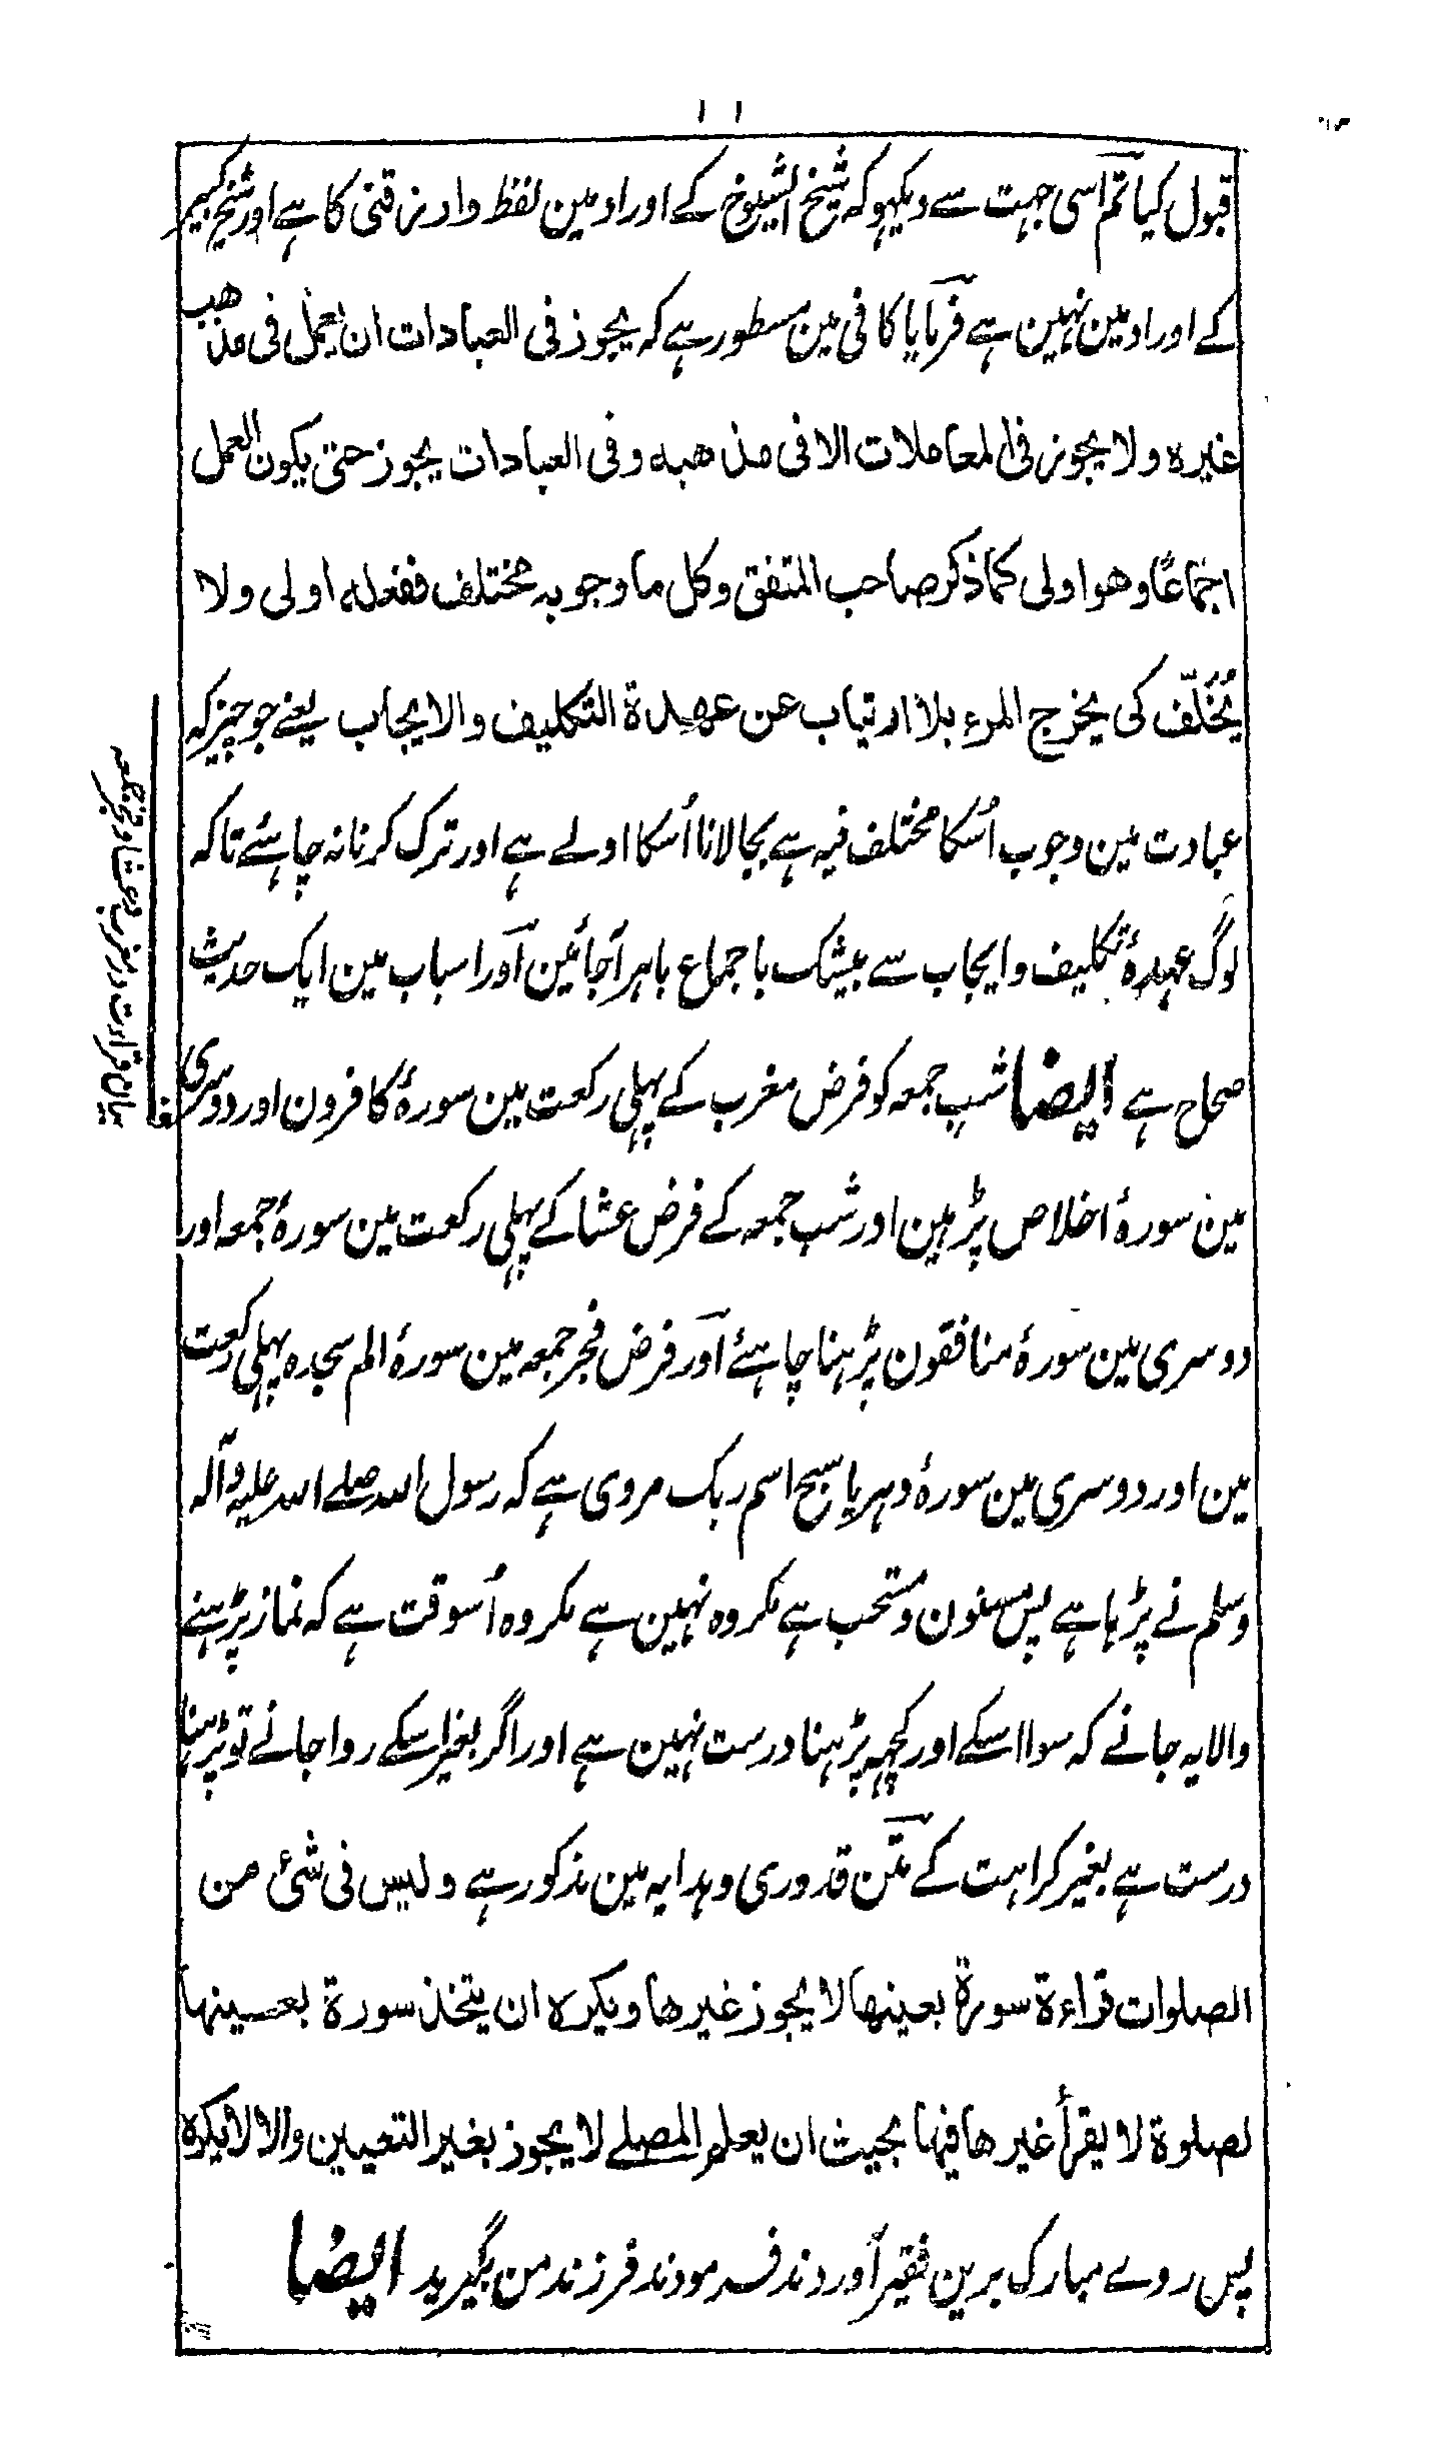 ۱۱
قبول کیا تم اسی جہت سے دیکہو کہ شیخ الشیوخ کے اوراد مین لفظ وارزقنی کا ہے اور شیخ کبیر
کے اوراد مین نہین ہے فرمایا کافی مین مسطور ہے کہ یجوز فی العبادات ان یعمل فی مذہب
غیرہ ولا یجوز فی المعاملات الا فی مذھبہ وفی العبادات یجوز حتی یکون العمل
اجماعًا وھو اولی کما ذکر صاحب المتفق وکل ما وجوبہ مختلف ففعلہ اولی ولا
یُخَلَّف کی یخرج المرء بلا ارتیاب عن عھدة التکلیف والایجاب یعنے جو چیز کہ
عبادت مین وجوب اُسکا مختلف فیہ ہے بجا لانا اُسکا اولے ہے اور ترک کرنا نہ چاہئے تاکہ
لوگ عہدۂ تکلیف و ایجاب سے بیشک باجماع باہر آجائین اور اسباب مین ایک حدیث
صحاح ہے ایضا شب جمعہ کو فرض مغرب کے پہلی رکعت مین سورۂ کافرون اور دوسری
مین سورۂ اخلاص پڑہین اور شب جمعہ کے فرض عشا کے پہلی رکعت مین سورۂ جمعہ اور
دوسری مین سورۂ منافقون پڑہنا چاہئے اور فرض فجر جمعہ مین سورۂ الم سجدہ پہلی رکعت
مین اور دوسری مین سورۂ دہر یا سبح اسم ربک مروی ہے کہ رسول اللہ صلے اللہ علیہ وآلہ
وسلم نے پڑہا ہے پس مسنون و مستحب ہے مکروہ نہین ہے مکروہ اُسوقت ہے کہ نماز پڑہنے
والا یہ جانے کہ سوا اسکے اور کچہہ پڑہنا درست نہین ہے اور اگر بغیر اسکے روا جانے تو پڑہنا
درست ہے بغیر کراہت کے متن قدوری و ہدایہ مین مذکور ہے ولیس فی شئ من
الصلوات قراءة سورة بعینھا لا یجوز غیرھا ویکرہ ان یتخذ سورة بعینھا
لصلوة لا یقرأ غیرھا فیھا بحیث ان یعلم المصلے لا یجوز بغیر التعیین والا لا یکرہ
پس روے مبارک برین فقیر آوردند فرمودند فرزند من بگیرید ایضا
بیان قراءت در مغرب و عشا و فجر جمعہ